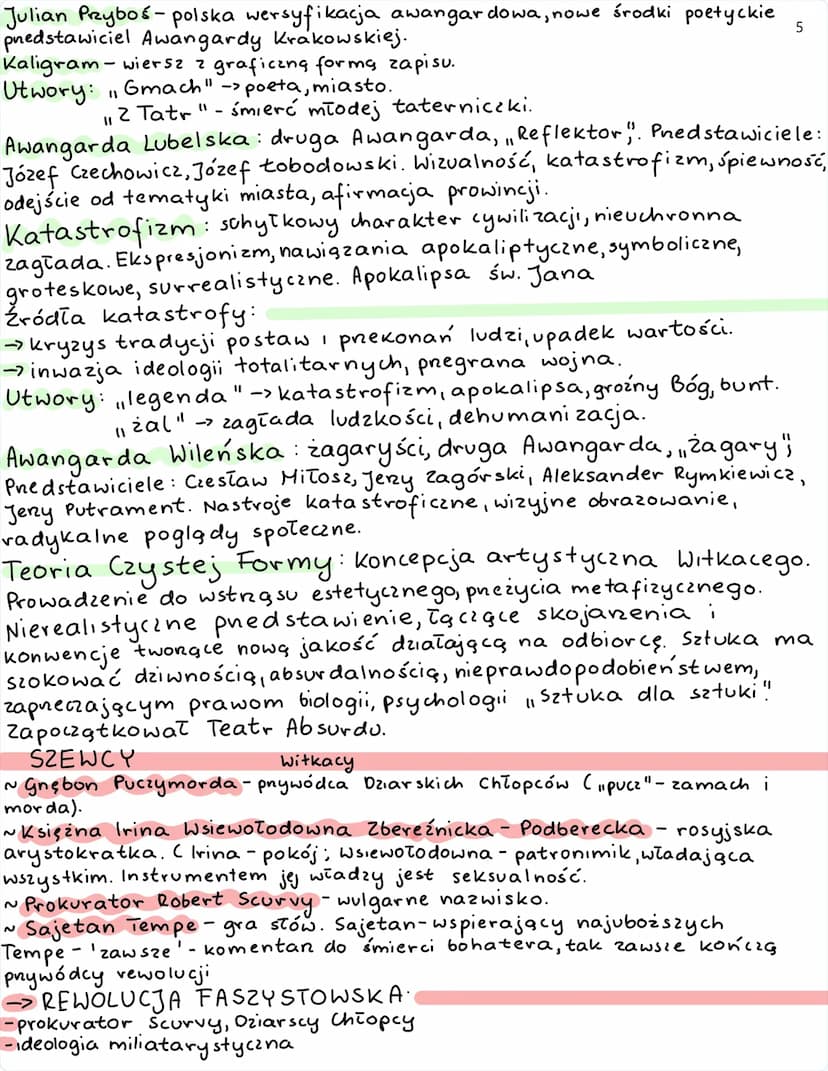 Julian Przyboś - polska wersyfikacja awangardowa, nowe środki poetyckie
5
przedstawiciel Awangardy Krakowskiej.
Kaligram - wiersz z graficzną formą zapisu.
Utwory: „Gmach" -> poeta, miasto.
„Z Tatr" - śmierć młodej taterniczki.
Awangarda Lubelska: druga Awangarda, „Reflektor". Przedstawiciele:
Józef Czechowicz, Józef Łobodowski. Wizualność, katastrofizm, śpiewność,
odejście od tematyki miasta, afirmacja prowincji.
Katastrofizm: schyłkowy charakter cywilizacji, nieuchronna
zagłada. Ekspresjonizm, nawiązania apokaliptyczne, symboliczne,
groteskowe, surrealistyczne. Apokalipsa św. Jana
Źródła katastrofy:
-> kryzys tradycji postaw i przekonań ludzi, upadek wartości.
-> inwazja ideologii totalitarnych, przegrana wojna.
Utwory: „legenda" -> katastrofizm, apokalipsa, groźny Bóg, bunt.
„żal" -> zagłada ludzkości, dehumanizacja.
Awangarda Wileńska: żagaryści, druga Awangarda, „Żagary";
Przedstawiciele: Czesław Miłosz, Jerzy Zagórski, Aleksander Rymkiewicz,
Jerzy Putrament. Nastroje katastroficzne, wizyjne obrazowanie,
radykalne poglądy społeczne.
Teoria Czystej Formy: koncepcja artystyczna Witkacego.
Prowadzenie do wstrząsu estetycznego, przeżycia metafizycznego.
Nierealistyczne przedstawienie, łączące skojarzenia i
konwencje tworzące nową jakość działającą na odbiorcę. Sztuka ma
szokować dziwnością, absurdalnością, nieprawdopodobieństwem,
zaprzeczającym prawom biologii, psychologii „Sztuka dla sztuki".
Zapoczątkował Teatr Absurdu.
SZEWCY Witkacy
~ Gnębon Puczymorda - przywódca Dziarskich Chłopców („pucz" - zamach i
morda).
~ Księżna Irina Wsiewołodowna Zbereźnicka - Podberecka - rosyjska
arystokratka. (Irina - pokój; Wsiewołodowna - patronimik, władająca
wszystkim. Instrumentem jej władzy jest seksualność.
~ Prokurator Robert Scurvy - wulgarne nazwisko.
~ Sajetan Tempe - gra słów. Sajetan - wspierający najuboższych
Tempe - 'zawsze' - komentarz do śmierci bohatera, tak zawsze kończą
przywódcy rewolucji
-> REWOLUCJA FASZYSTOWSKA.
- prokurator Scurvy, Dziarscy Chłopcy
- ideologia miliatarystyczna